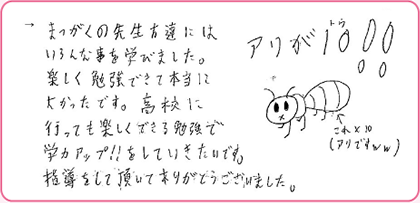 → まつがくの先生方達には
いろんな事を学びました。
楽しく勉強できて本当に
よかったです。高校に
行っても楽しくできる勉強で
学力アップ!!をしていきたいです。
指導をして頂いてありがとうございました。
アリが10!!
トウ
これ×10
(アリですww)